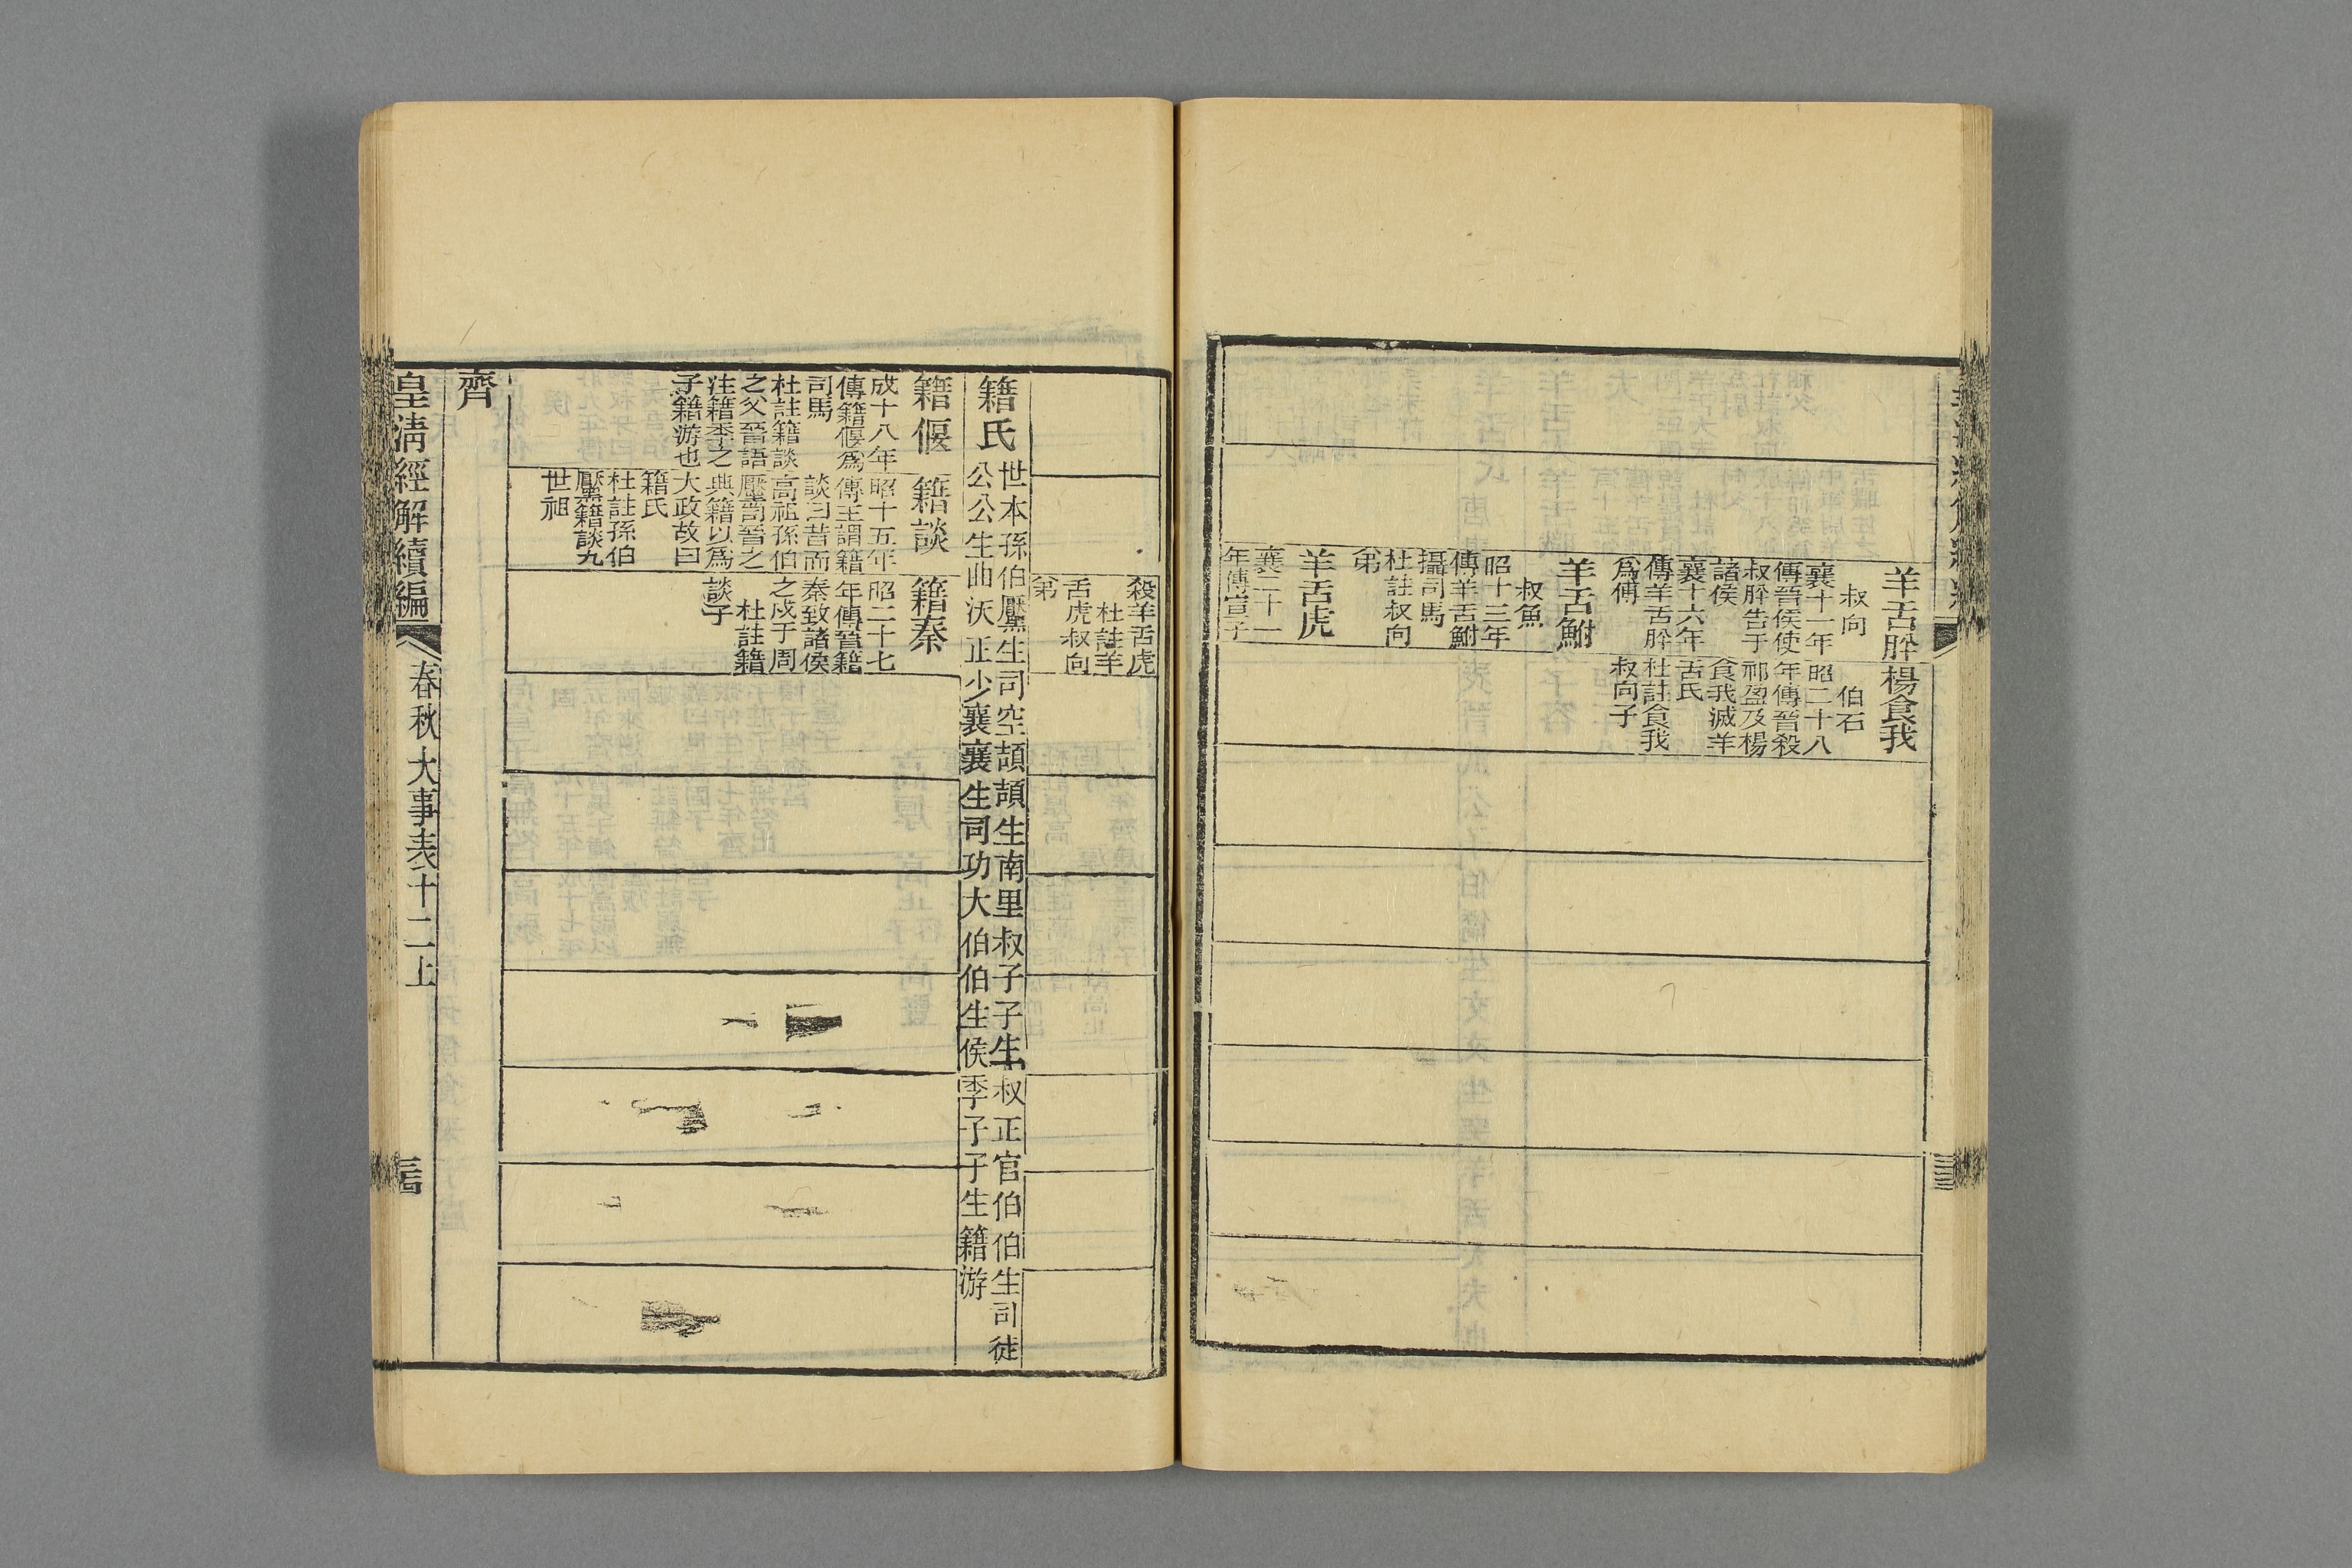 羊舌肸
叔向
襄十一年
傳晉侯使
叔肸告于
諸侯
襄十六年
傳羊舌肸
爲傅
楊食我
伯石
昭二十八
年傳晉殺
祁盈及楊
食我滅羊
舌氏
杜註食我
叔向子
羊舌鮒
叔魚
昭十三年
傳羊舌鮒
攝司馬
杜註叔向
弟
羊舌虎
襄二十一
年傳宣子
殺羊舌虎
杜註羊
舌虎叔向
弟
籍氏
世本孫伯黶生司空頡頡生南里叔子子生叔正官伯伯生司徒
公公生曲沃正少襄襄生司功大伯伯生侯季子子生籍游
籍偃
成十八年
傳籍偃爲
司馬
杜註籍談
之父晉語
注籍季之
子籍游也
籍談
昭十五年
傳王謂籍
談曰昔而
高祖孫伯
黶司晉之
典籍以爲
大政故曰
籍氏
杜註孫伯
黶籍談九
世祖
籍秦
昭二十七
年傳晉籍
秦致諸侯
之戍于周
杜註籍
談子
齊
皇清經解續編
春秋大事表十二上